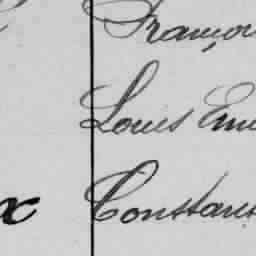 Françoi
Louis Emi
x Constan